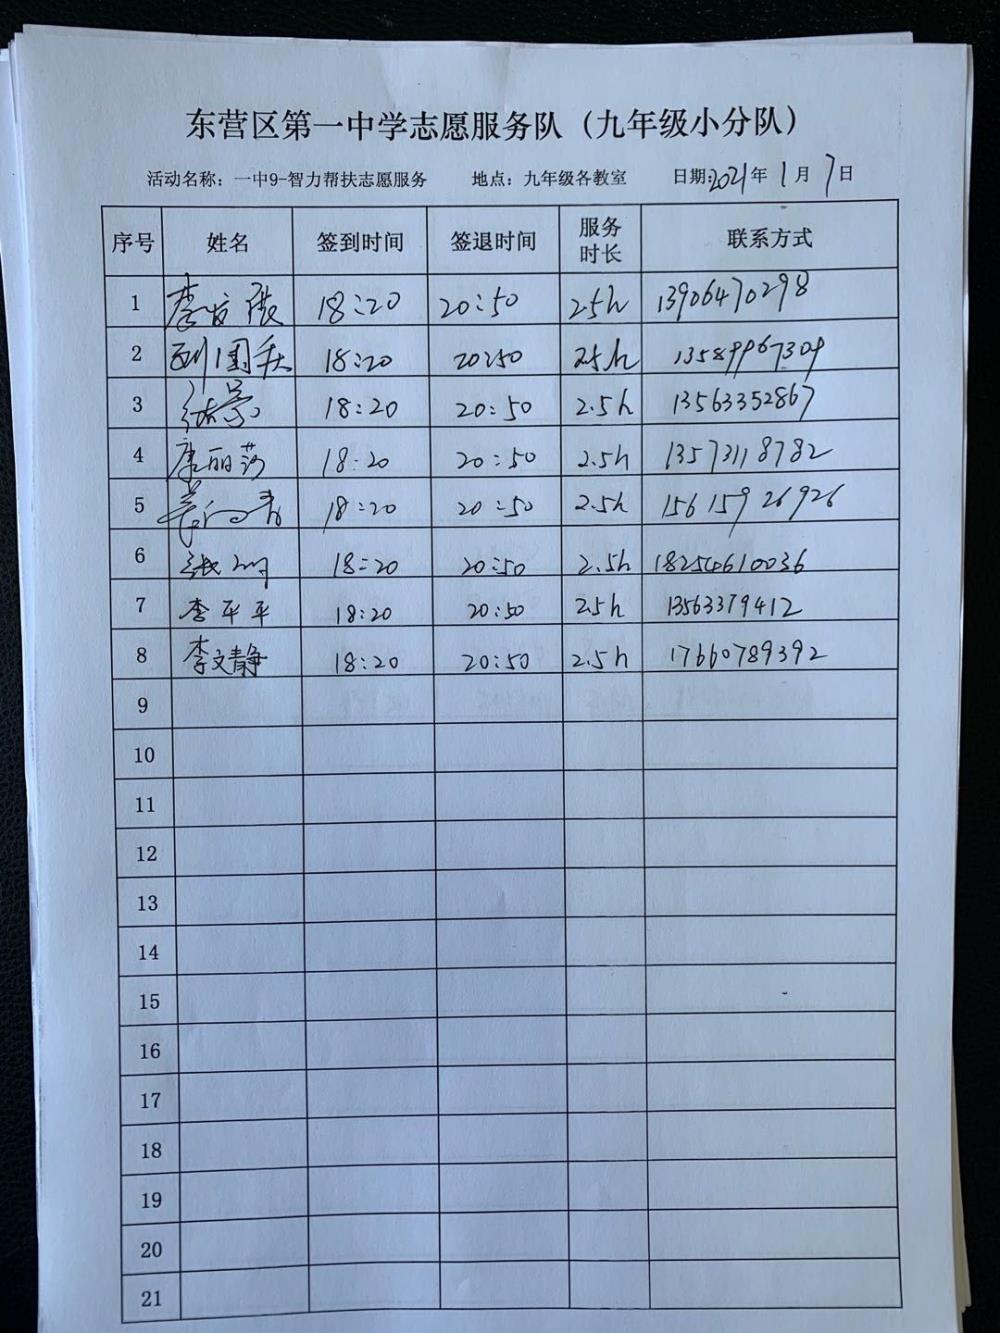 东营区第一中学志愿服务队（九年级小分队）
活动名称：一中9-智力帮扶志愿服务 地点：九年级各教室 日期:2021年1月7日
序号 姓名 签到时间 签退时间 服务时长 联系方式
1 李 18:20 20:50 2.5h 13906470298
2 刘国 18:20 20:50 2.5h 13589967309
3 张景 18:20 20:50 2.5h 13563352867
4 康丽莎 18:20 20:50 2.5h 13573118782
5 18:20 20:50 2.5h 15615926926
6 张 18:20 20:50 2.5h 18254610036
7 李平平 18:20 20:50 2.5h 13563379412
8 李文静 18:20 20:50 2.5h 17660789392
9
10
11
12
13
14
15
16
17
18
19
20
21